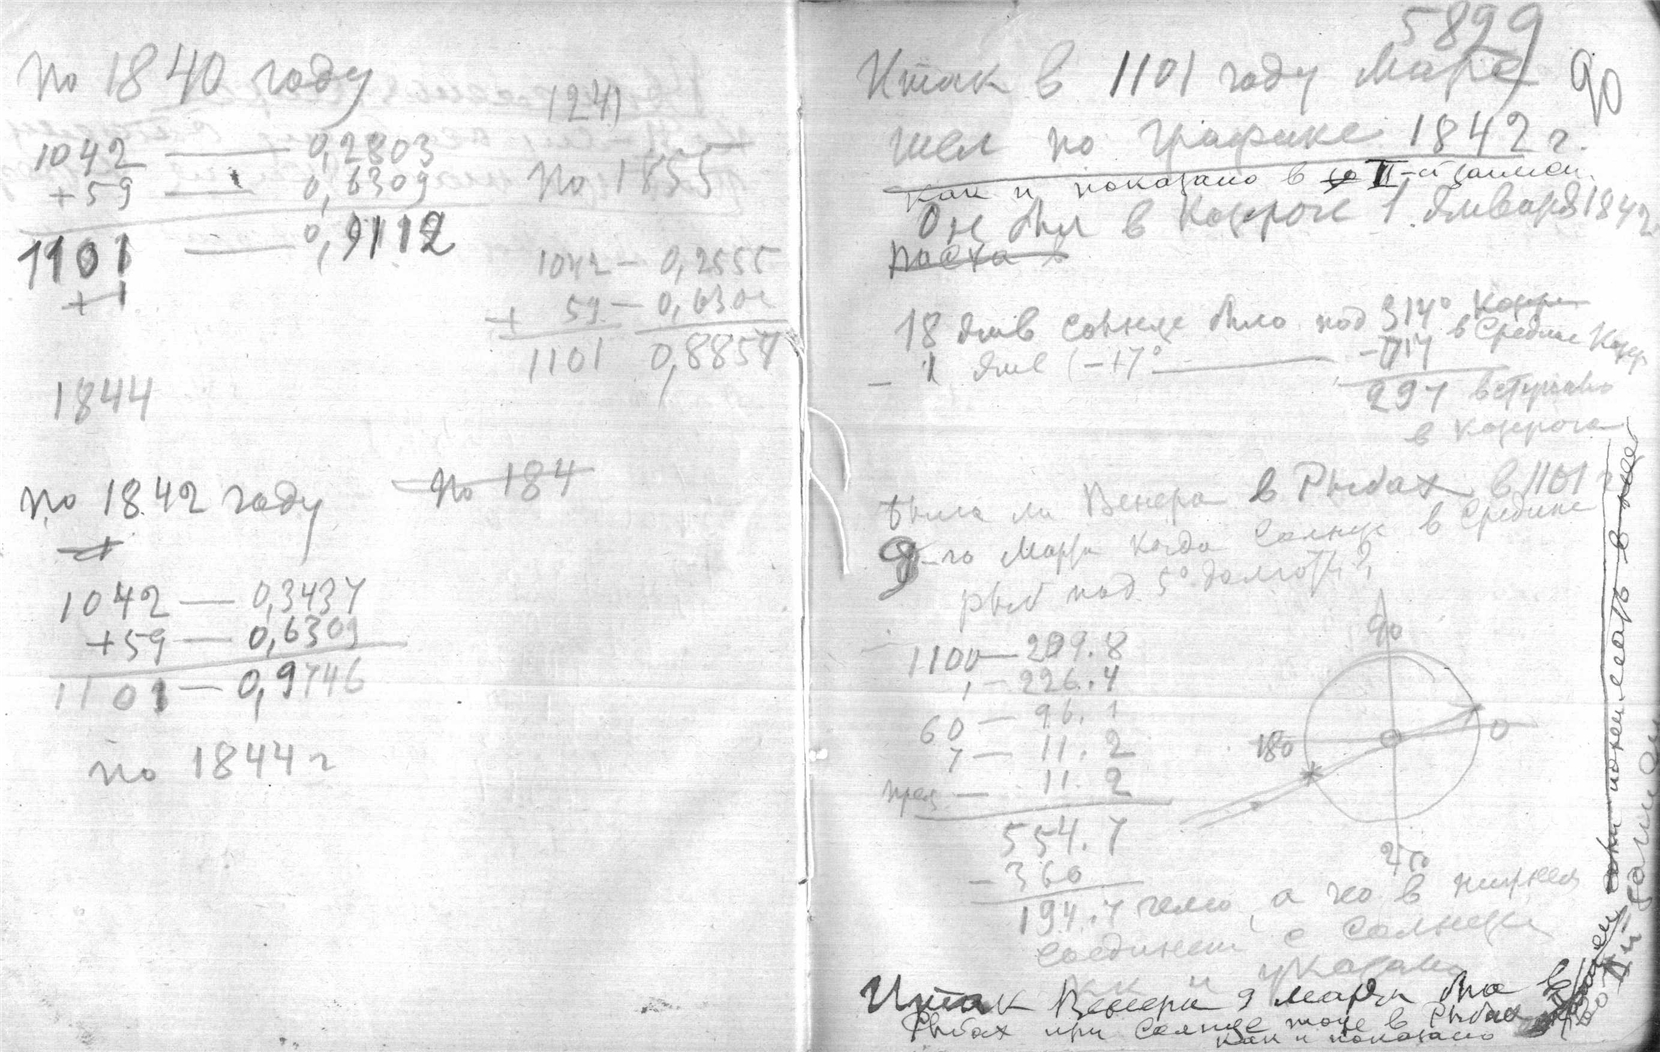 по 1840 году
1241
1042 — 0,2803
+59 — 0,6309
1101 — 0,9112
+1
по 1855
1042 — 0,2555
+ 59 — 0,6302
1101 0,8857
1844
по 1842 году
по 184
1042 — 0,3437
+59 — 0,6309
1101 — 0,9746
по 1844 г
5899
90
Итак в 1101 году Марс
шел по графике 1842 г.
как и показано в II-й записи.
Он был в Козроге 1 января 1842
18 янв солнце было под 314°
в Средине Козер
- 1 янв (-17° — -17
297 вступало
в козрога
Была ли Венера в Рыбах в 1101 г
9-го Марта когда Солнце в Средине
рыб под 5° долготы?
1100 — 209.8
1 — 226.4
60 — 96.1
7 — 11.2
прец — 11.2
554.7
- 360
194.7 гелио, а гео в нижнем
соединении с Солнцем
как и указано
90
180
0
270
Итак Венера 9 марта была в
Рыбах при Солнце тоже в Рыбах
как и показано